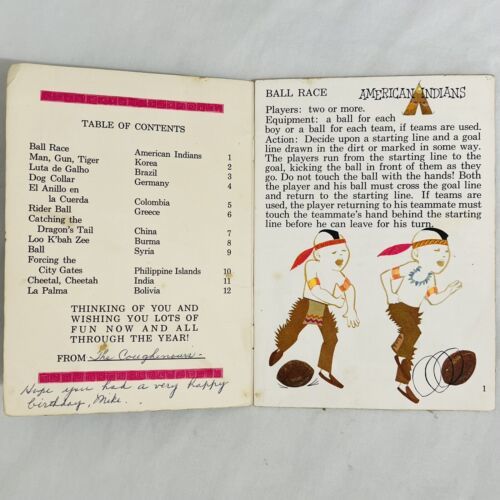 TABLE OF CONTENTS
Ball Race American Indians 1
Man, Gun, Tiger Korea 2
Luta de Galho Brazil 3
Dog Collar Germany 4
El Anillo en
la Cuerda Colombia 5
Rider Ball Greece 6
Catching the
Dragon's Tail China 7
Loo K'bah Zee Burma 8
Ball Syria 9
Forcing the
City Gates Philippine Islands 10
Cheetal, Cheetah India 11
La Palma Bolivia 12
THINKING OF YOU AND
WISHING YOU LOTS OF
FUN NOW AND ALL
THROUGH THE YEAR!
FROM The Coughenours
Hope you had a very happy
birthday, Mike.
BALL RACE AMERICAN INDIANS
Players: two or more.
Equipment: a ball for each
boy or a ball for each team, if teams are used.
Action: Decide upon a starting line and a goal
line drawn in the dirt or marked in some way.
The players run from the starting line to the
goal, kicking the ball in front of them as they
go. Do not touch the ball with the hands! Both
the player and his ball must cross the goal line
and return to the starting line. If teams are
used, the player returning to his teammate must
touch the teammate's hand behind the starting
line before he can leave for his turn.
1